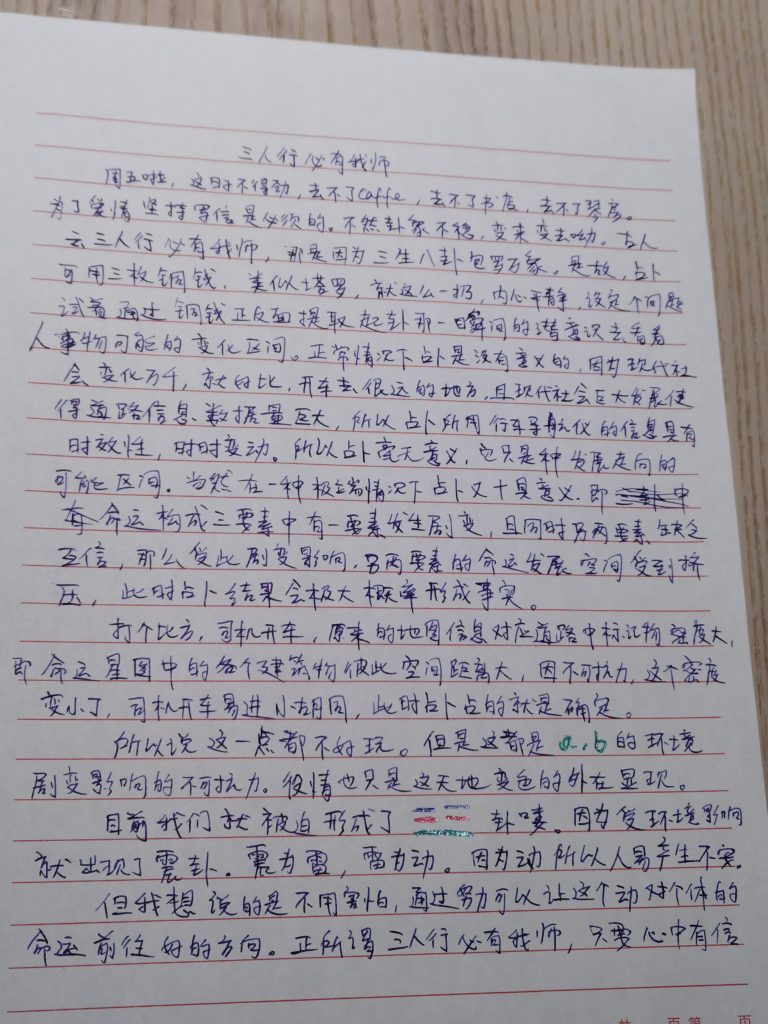 三人行必有我师
周五啦，这日时不得劲，去不了caffe，去不了书店，去不了琴房。
为了爱情坚持写信是必须的。不然卦象不稳，变来变去呦。古人
云三人行必有我师，那是因为三生八卦包罗万象。是故，占卜
可用三枚铜钱，类似塔罗，就这么一扔，内心平静，设定个问题
试着通过铜钱正反面提取起卦那一瞬间的潜意识去看看
人事物可能的变化区间。正常情况下占卜是没有意义的，因为现代社
会变化万千，就好比，开车去很远的地方，且现代社会巨大发展使
得道路信息数据量巨大，所以占卜所用行车导航仪的信息具有
时效性，时时变动。所以占卜毫无意义，它只是种发展走向的
可能区间。当然在一种极端情况下占卜又十具意义.即
命运构成三要素中有一要素发生剧变，且同时另两要素缺乏
互信，那么受此剧变影响，另两要素的命运发展空间受到挤
压，此时占卜结果会极大概率形成事实。
打个比方，司机开车，原来的地图信息对应道路中标记物密度大，
即命运星图中的各个建筑物彼此空间距离大，因不可抗力，这个密度
变小了，司机开车易进小胡同，此时占卜占的就是确定。
所以说这一点都不好玩。但是这都是a,b的环境
剧变影响的不可抗力。疫情也只是这天地变色的外在显现。
目前我们就被迫形成了 ☳ 卦喽。因为受环境影响
就出现了震卦。震为雷，雷为动。因为动所以人易产生不安.
但我想说的是不用害怕，通过努力可以让这个动对个体的
命运前往好的方向。正所谓三人行必有我师，只要心中有信
共 页 第 页